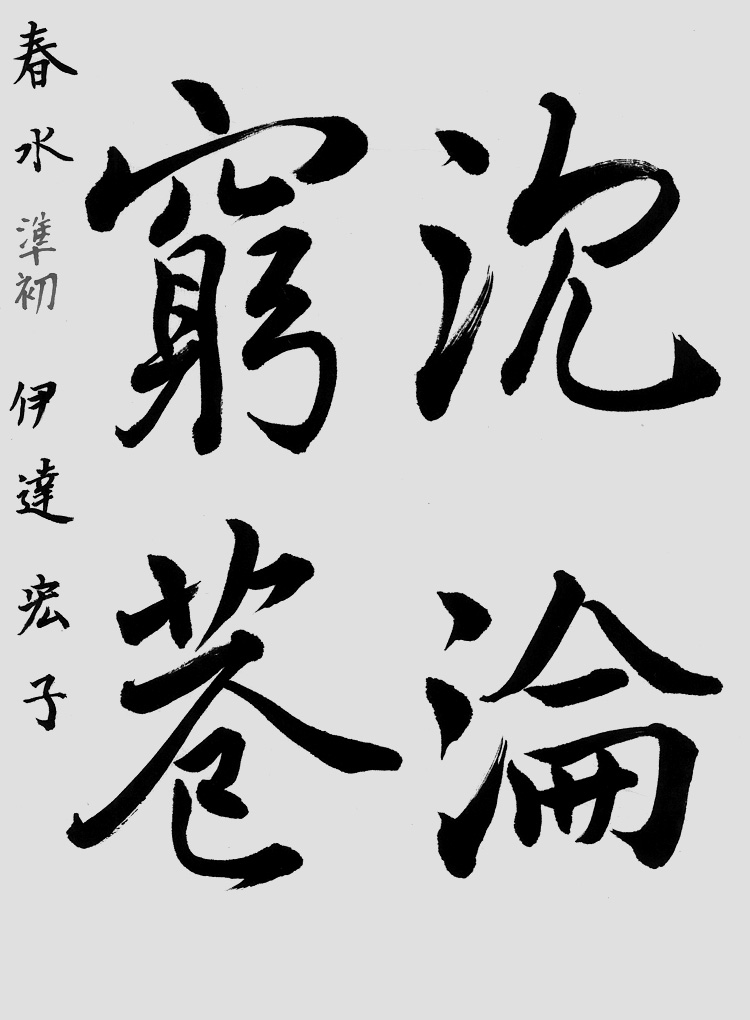 沈淪
窮巷
春水 準初 伊達宏子